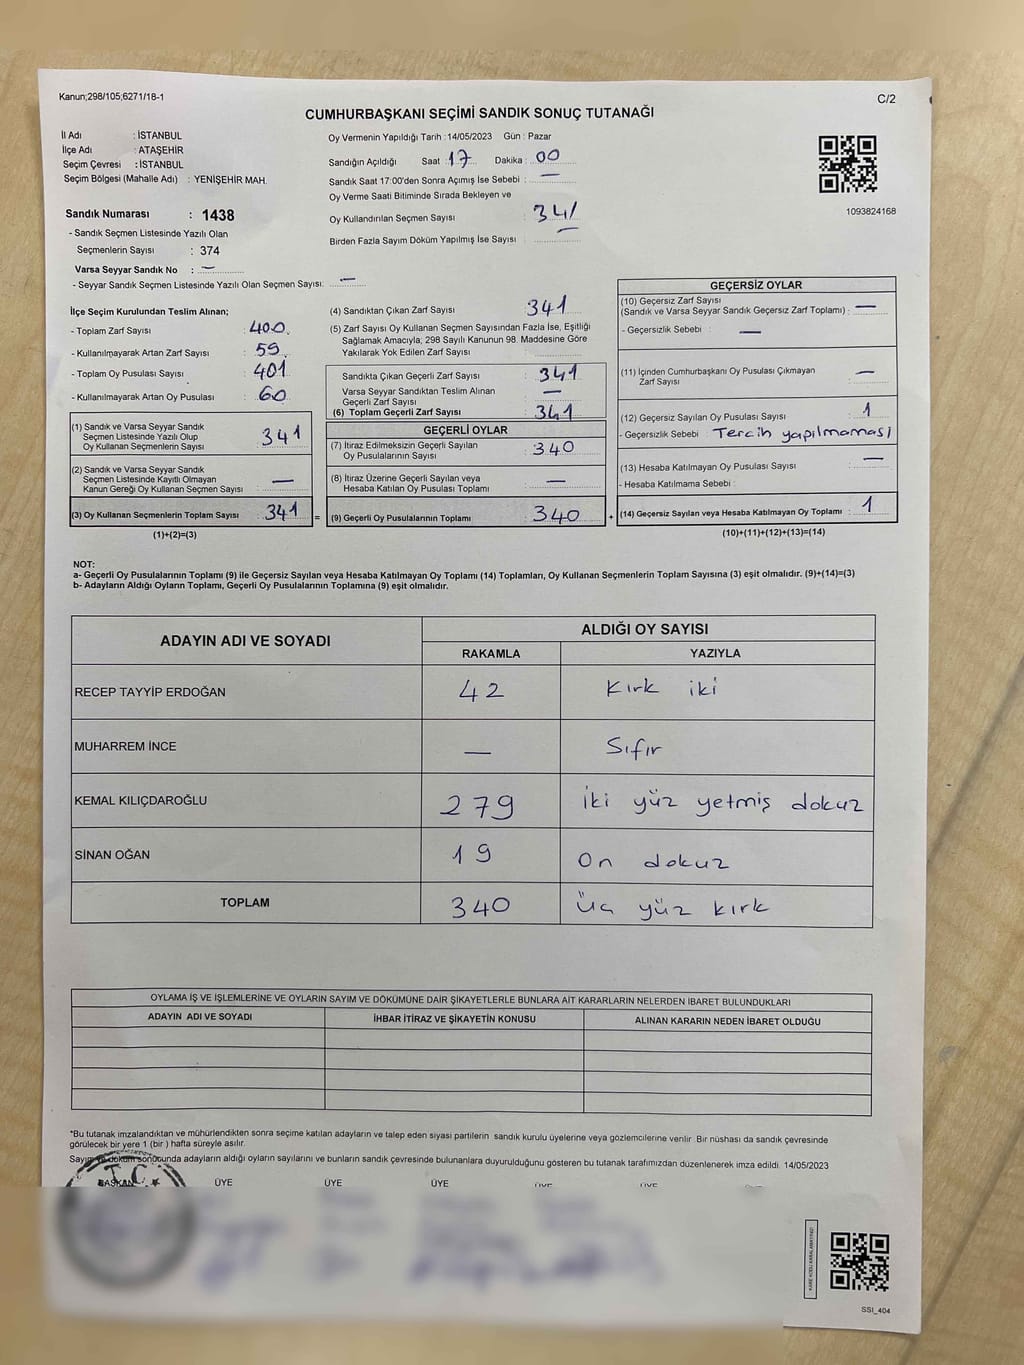 Kanun;298/105;6271/18-1
C/2
CUMHURBAŞKANI SEÇİMİ SANDIK SONUÇ TUTANAĞI
İl Adı : İSTANBUL
İlçe Adı : ATAŞEHİR
Seçim Çevresi : İSTANBUL
Seçim Bölgesi (Mahalle Adı) : YENİŞEHİR MAH.
Sandık Numarası : 1438
- Sandık Seçmen Listesinde Yazılı Olan
Seçmenlerin Sayısı : 374
Varsa Seyyar Sandık No : —
- Seyyar Sandık Seçmen Listesinde Yazılı Olan Seçmen Sayısı: —
Oy Vermenin Yapıldığı Tarih : 14/05/2023 Gün : Pazar
Sandığın Açıldığı Saat : 17 Dakika : 00
Sandık Saat 17:00'den Sonra Açımış İse Sebebi : —
Oy Verme Saati Bitiminde Sırada Bekleyen ve
Oy Kullandırılan Seçmen Sayısı : 341
Birden Fazla Sayım Döküm Yapılmış İse Sayısı :
1093824168
İlçe Seçim Kurulundan Teslim Alınan;
- Toplam Zarf Sayısı : 400
- Kullanılmayarak Artan Zarf Sayısı : 59
- Toplam Oy Pusulası Sayısı : 401
- Kullanılmayarak Artan Oy Pusulası : 60
(1) Sandık ve Varsa Seyyar Sandık
Seçmen Listesinde Yazılı Olup
Oy Kullanan Seçmenlerin Sayısı : 341
(2) Sandık ve Varsa Seyyar Sandık
Seçmen Listesinde Kayıtlı Olmayan
Kanun Gereği Oy Kullanan Seçmen Sayısı : —
(3) Oy Kullanan Seçmenlerin Toplam Sayısı : 341 =
(1)+(2)=(3)
(4) Sandıktan Çıkan Zarf Sayısı : 341
(5) Zarf Sayısı Oy Kullanan Seçmen Sayısından Fazla İse, Eşitliği
Sağlamak Amacıyla; 298 Sayılı Kanunun 98. Maddesine Göre
Yakılarak Yok Edilen Zarf Sayısı :
Sandıkta Çıkan Geçerli Zarf Sayısı : 341
Varsa Seyyar Sandıktan Teslim Alınan
Geçerli Zarf Sayısı : —
(6) Toplam Geçerli Zarf Sayısı : 341
GEÇERLİ OYLAR
(7) İtiraz Edilmeksizin Geçerli Sayılan
Oy Pusulalarının Sayısı : 340
(8) İtiraz Üzerine Geçerli Sayılan veya
Hesaba Katılan Oy Pusulası Toplamı : —
(9) Geçerli Oy Pusulalarının Toplamı : 340 +
GEÇERSİZ OYLAR
(10) Geçersiz Zarf Sayısı
(Sandık ve Varsa Seyyar Sandık Geçersiz Zarf Toplamı) : —
- Geçersizlik Sebebi : —
(11) İçinden Cumhurbaşkanı Oy Pusulası Çıkmayan
Zarf Sayısı : —
(12) Geçersiz Sayılan Oy Pusulası Sayısı : 1
- Geçersizlik Sebebi : Tercih yapılmaması
(13) Hesaba Katılmayan Oy Pusulası Sayısı : —
- Hesaba Katılmama Sebebi :
(14) Geçersiz Sayılan veya Hesaba Katılmayan Oy Toplamı : 1
(10)+(11)+(12)+(13)=(14)
NOT:
a- Geçerli Oy Pusulalarının Toplamı (9) ile Geçersiz Sayılan veya Hesaba Katılmayan Oy Toplamı (14) Toplamları, Oy Kullanan Seçmenlerin Toplam Sayısına (3) eşit olmalıdır. (9)+(14)=(3)
b- Adayların Aldığı Oyların Toplamı, Geçerli Oy Pusulalarının Toplamına (9) eşit olmalıdır.
ADAYIN ADI VE SOYADI
ALDIĞI OY SAYISI
RAKAMLA YAZIYLA
RECEP TAYYİP ERDOĞAN 42 Kırk iki
MUHARREM İNCE — Sıfır
KEMAL KILIÇDAROĞLU 279 iki yüz yetmiş dokuz
SİNAN OĞAN 19 On dokuz
TOPLAM 340 Üç yüz kırk
OYLAMA İŞ VE İŞLEMLERİNE VE OYLARIN SAYIM VE DÖKÜMÜNE DAİR ŞİKAYETLERLE BUNLARA AİT KARARLARIN NELERDEN İBARET BULUNDUKLARI
ADAYIN ADI VE SOYADI İHBAR İTİRAZ VE ŞİKAYETİN KONUSU ALINAN KARARIN NEDEN İBARET OLDUĞU
*Bu tutanak imzalandıktan ve mühürlendikten sonra seçime katılan adayların ve talep eden siyasi partilerin sandık kurulu üyelerine veya gözlemcilerine verilir. Bir nüshası da sandık çevresinde
görülecek bir yere 1 (bir ) hafta süreyle asılır.
Sayım ve döküm sonucunda adayların aldığı oyların sayılarını ve bunların sandık çevresinde bulunanlara duyurulduğunu gösteren bu tutanak tarafımızdan düzenlenerek imza edildi. 14/05/2023
T.C.
BAŞKAN ÜYE ÜYE ÜYE ÜYE ÜYE
SSİ_404